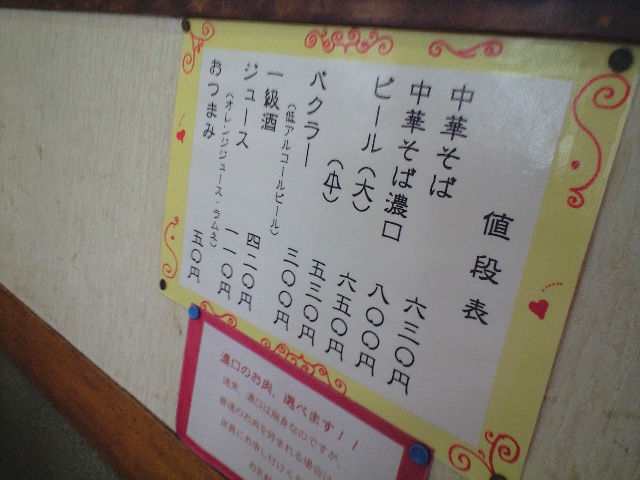 値段表
中華そば 六三〇円
中華そば濃口 八〇〇円
ビール（大） 六五〇円
（中） 五三〇円
バクラー 三〇〇円
（低アルコールビール）
一級酒 四二〇円
ジュース 一一〇円
（オレンジジュース・ラムネ）
おつまみ 五〇円
濃口のお肉、選べます！！
通常、濃口は豚身なのですが、
普通のお肉を好まれる場合は
店員にお申し付けく
お気軽